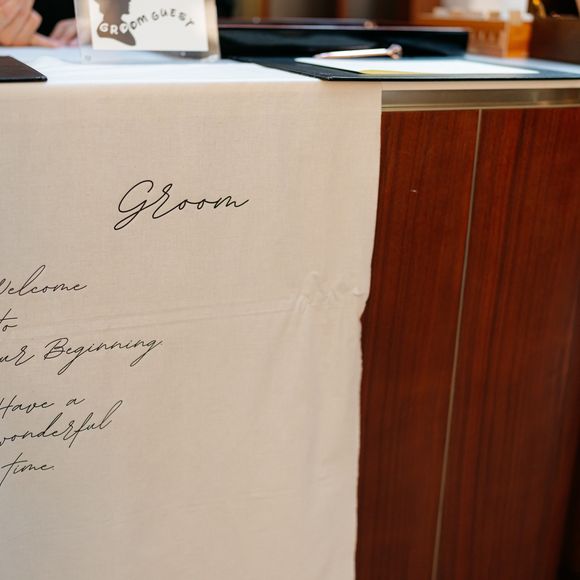 GROOM GUEST
Groom
Welcome
to
our Beginning
Have a
wonderful
time.